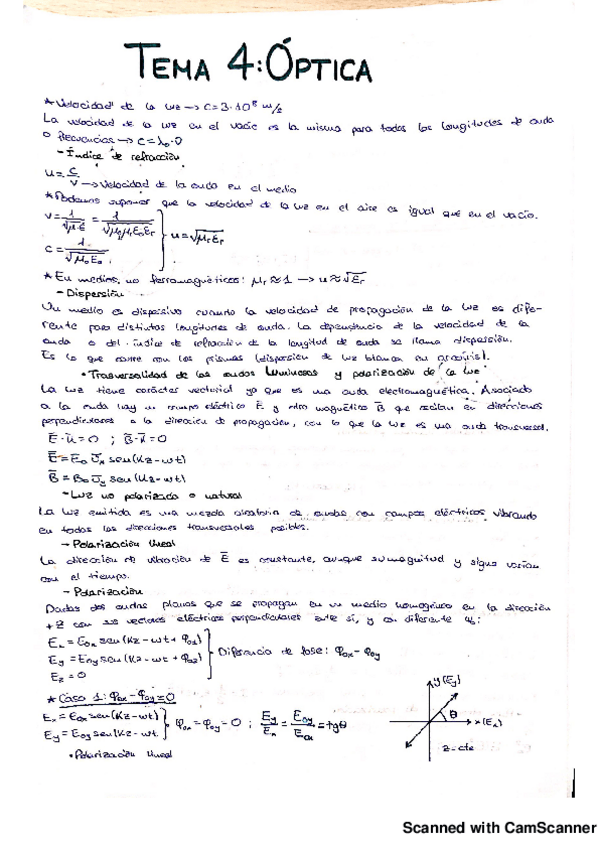 TEMA 4: ÓPTICA
* Velocidad de la luz → c = 3·10⁸ m/s
La velocidad de la luz en el vacío es la misma para todas las longitudes de onda
o frecuencias → c = λ₀·υ
- Índice de refracción
u = c/v → velocidad de la onda en el medio
* Podemos suponer que la velocidad de la luz en el aire es igual que en el vacío.
v = 1/√μ·ε = 1/√μ₀μᵣε₀εᵣ
c = 1/√μ₀ε₀ } u = √μᵣεᵣ
* En medios no ferromagnéticos: μᵣ ≈ 1 → u ≈ √εᵣ
- Dispersión
Un medio es dispersivo cuando la velocidad de propagación de la luz es dife-
rente para distintas longitudes de onda. La dependencia de la velocidad de la
onda o del índice de refracción de la longitud de onda se llama dispersión.
Es lo que ocurre con los prismas (dispersión de luz blanca en arcoíris).
• Trasversalidad de las ondas luminosas y polarización de la luz
La luz tiene carácter vectorial ya que es una onda electromagnética. Asociado
a la onda hay un campo eléctrico E̅ y otro magnético B̅ que oscilan en direcciones
perpendiculares a la dirección de propagación, con lo que la luz es una onda transversal.
E̅·k̅ = 0 ; B̅·k̅ = 0
E̅ = E₀ U̅ₓ sen(kz - wt)
B̅ = B₀ U̅y sen(kz - wt)
- Luz no polarizada o natural
La luz emitida es una mezcla aleatoria de ondas con campos eléctricos vibrando
en todas las direcciones transversales posibles.
- Polarización lineal
La dirección de vibración de E̅ es constante, aunque su magnitud y signo varían
con el tiempo.
- Polarización
Dadas dos ondas planas que se propagan en un medio homogéneo en la dirección
+z con sus vectores eléctricos perpendiculares entre sí, y con diferente φ₀:
Eₓ = E₀ₓ sen(kz - wt + φ₀ₓ)
Ey = E₀y sen(kz - wt + φ₀y) } Diferencia de fase: φ₀ₓ - φ₀y
Ez = 0
* Caso 1: φ₀ₓ - φ₀y = 0
Eₓ = E₀ₓ sen(kz - wt)
Ey = E₀y sen(kz - wt) } φ₀ₓ = φ₀y = 0 ; Ey/Eₓ = E₀y/E₀ₓ = tgθ
• Polarización lineal
y (Ey)
θ
x (Eₓ)
z = cte
Scanned with CamScanner